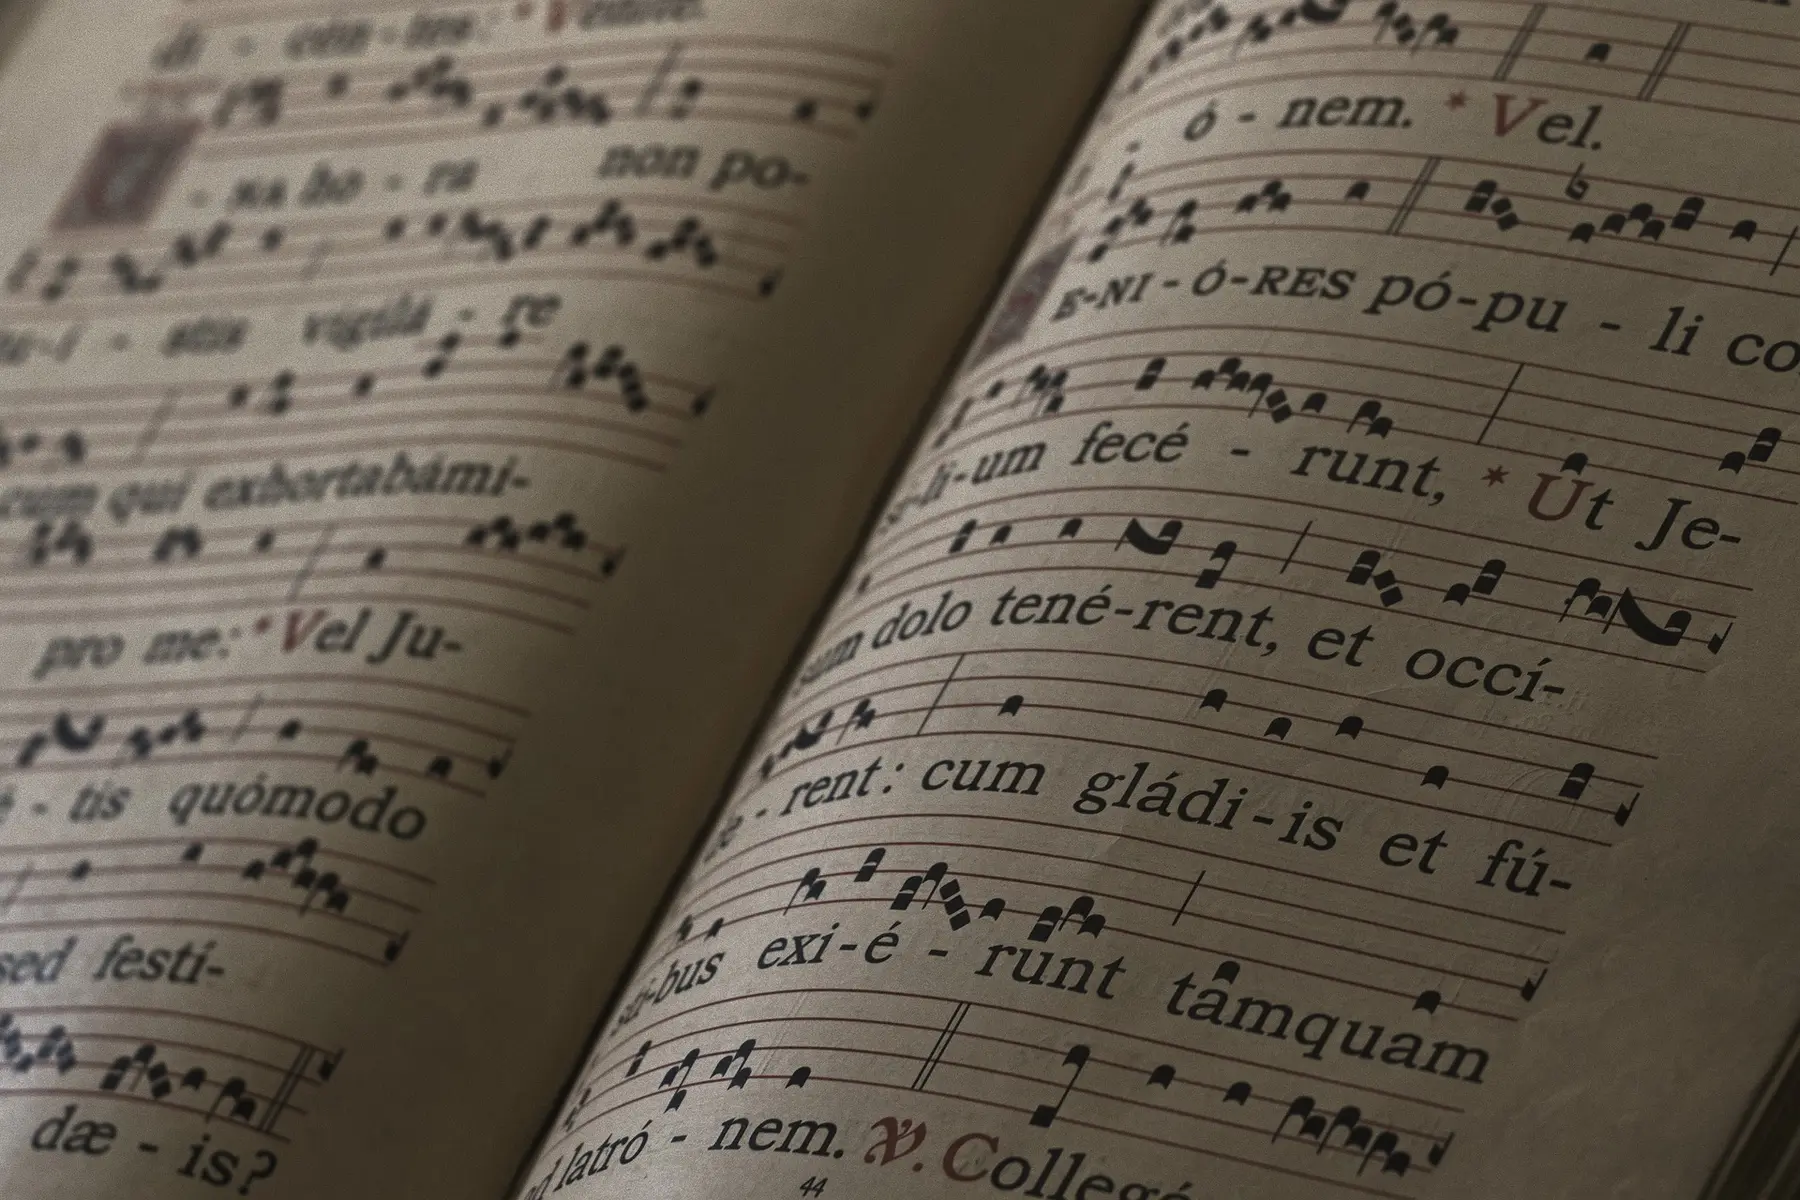 di - cén - tes: * Venite.
- NA ho - ra non po-
tu-í - stis vigilá - re
cum qui exhortabámi-
pro me: * Vel Ju-
é - tis quómodo
sed festí-
dæ - is?
ó - nem. * Vel.
E-NI-Ó-RES pópu - li co
li-um fecé - runt, * Ut Je-
sum dolo tené-rent, et occí-
rent: cum gládi-is et fú-
sti-bus exi-é - runt tamquam
ad latró - nem. ℣. Collegé
44